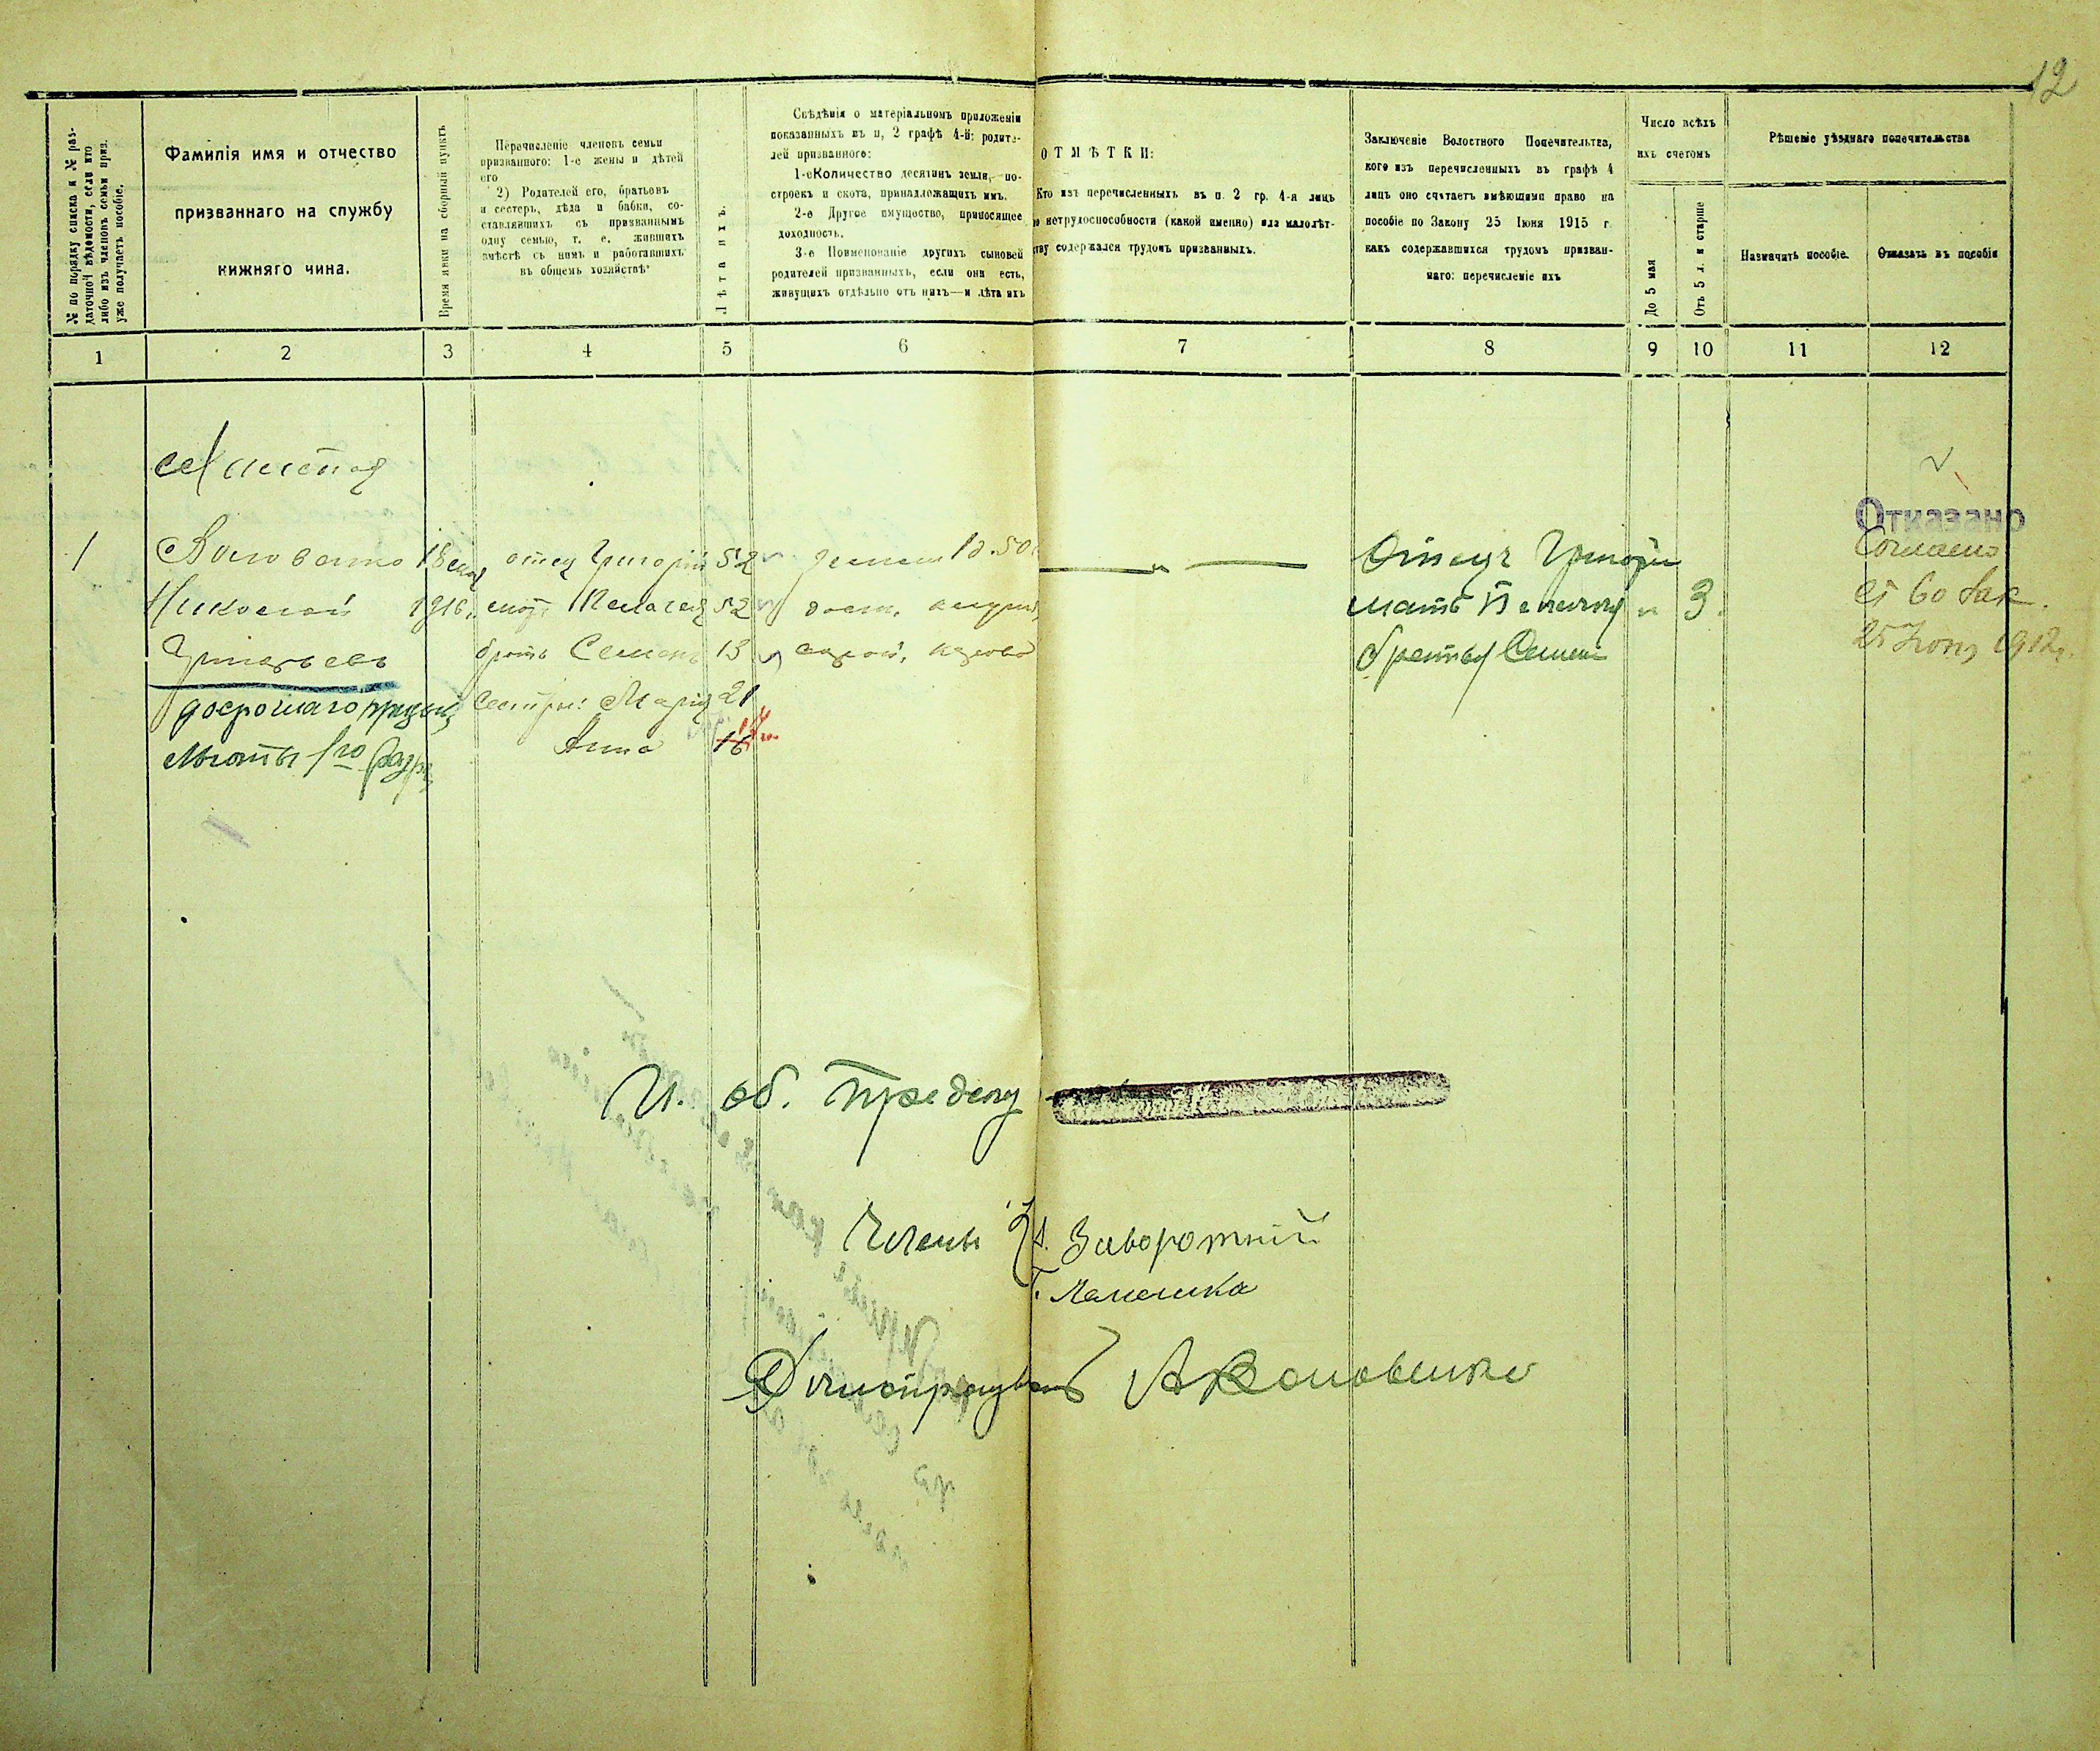 12
№ по порядку списка и № раз-
даточной вѣдомости, если кто
либо изъ членовъ семьи приз.
уже получаетъ пособие.
Фамилія имя и отчество
призваннаго на службу
нижняго чина.
Время явки на сборный пунктъ
Перечисленіе членовъ семьи
призваннаго: 1-е жены и дѣтей
его
2) Родителей его, братьевъ
и сестеръ, дѣда и бабки, со-
ставлявшихъ съ призваннымъ
одну семью, т. е. жившихъ
вмѣстѣ съ нимъ и работавшихъ
въ общемъ хозяйствѣ
Лѣта ихъ.
Свѣдѣнія о матеріальномъ приложеніи
показанныхъ въ п, 2 графѣ 4-й: родите-
лей призванного:
1-е Количество десятинъ земли, по-
строекъ и скота, принадлежащихъ имъ.
2-е Другое имущество, приносящее
доходность.
3-е Поименованіе другихъ сыновей
родителей призванныхъ, если они есть,
живущихъ отдѣльно отъ нихъ—и лѣта ихъ
ОТМѢТКИ:
Кто изъ перечисленныхъ въ п. 2 гр. 4-я лицъ
по нетрудоспособности (какой именно) или малолѣт-
ству содержался трудомъ призванныхъ.
Заключеніе Волостного Попечительтва,
кого изъ перечисленныхъ въ графѣ 4
лицъ оно считаетъ имѣющими право на
пособіе по Закону 25 Іюня 1915 г.
какъ содержавшихся трудомъ призван-
наго: перечисленіе ихъ
Число всѣхъ
ихъ счетомъ
До 5 мая
Отъ 5 л. и старше
Рѣшеніе уѣзднаго попечительства
Назначить пособіе.
Отказать въ пособіи
1 2 3 4 5 6 7 8 9 10 11 12
1
Николай
Григорьевъ
досрочнаго призыва
льготы 1го разр.
1916
отец Григорій 52
мат. Пелагея 52
братъ Семенъ 13
Сестры: Марія 21
Анна 16
земли 1 д. 50
Отецъ Григорій
мать Пелагея и
братья Семенъ
3.
Отказано
Согласно
ст 60 Зак.
25 Іюня 1912 г.
И. об. Предсѣд
Члены
Заворотній
Г.
Дѣлопроизвод